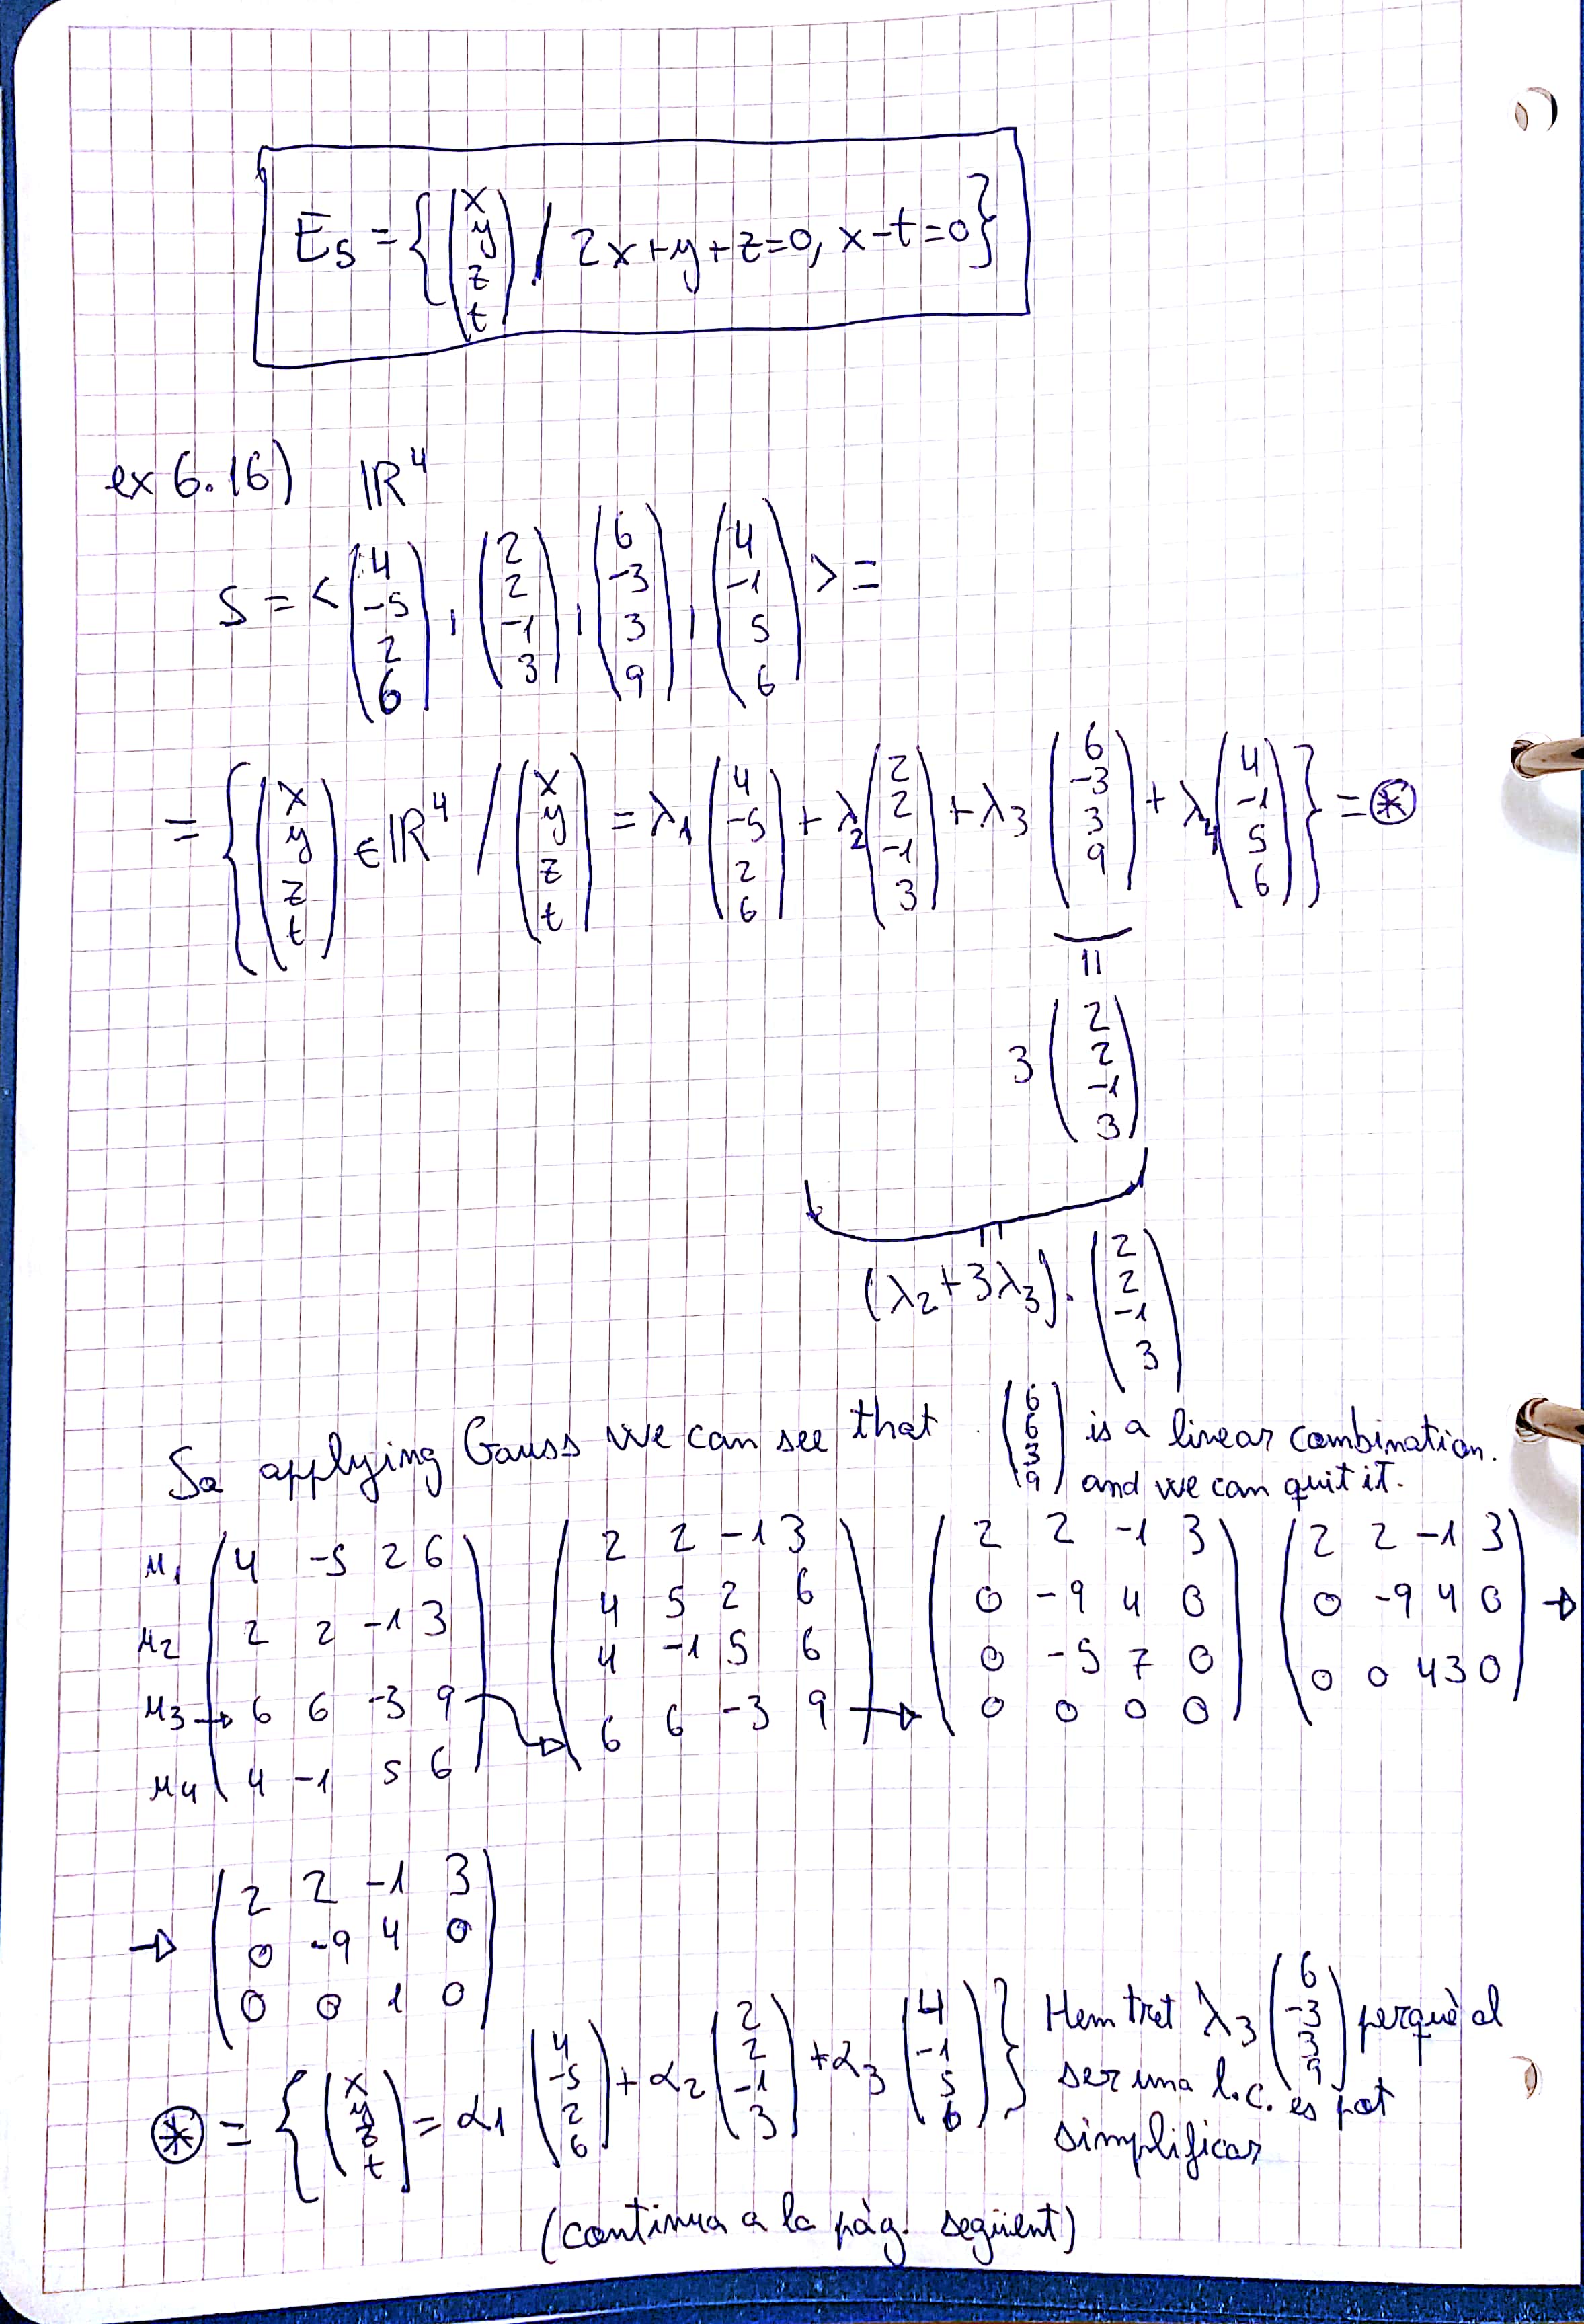 E_S = { (x y z t) / 2x+y+z=0, x-t=0 }
ex 6.16) ℝ⁴
S = < (4 -5 2 6), (2 2 -1 3), (6 -3 3 9), (4 -1 5 6) > =
= { (x y z t) ∈ ℝ⁴ / (x y z t) = λ1 (4 -5 2 6) + λ2 (2 2 -1 3) + λ3 (6 -3 3 9) + λ4 (4 -1 5 6) } = ⊛
||
3 (2 2 -1 3)
||
(λ2 + 3λ3) · (2 2 -1 3)
So applying Gauss we can see that (6 6 3 9) is a linear combination.
and we can quit it.
μ1 (4 -5 2 6
μ2 2 2 -1 3
μ3 → 6 6 -3 9
μ4 4 -1 5 6) → (2 2 -1 3
4 5 2 6
4 -1 5 6
6 6 -3 9) → (2 2 -1 3
0 -9 4 0
0 -5 7 0
0 0 0 0) (2 2 -1 3
0 -9 4 0
0 0 43 0) →
→ (2 2 -1 3
0 -9 4 0
0 0 1 0)
⊛ = { (x y z t) = α1 (4 -5 2 6) + α2 (2 2 -1 3) + α3 (4 -1 5 6) } Hem tret λ3 (6 -3 3 9) perquè al
ser una l.c. es pot
simplificar
(continua a la pàg. següent)